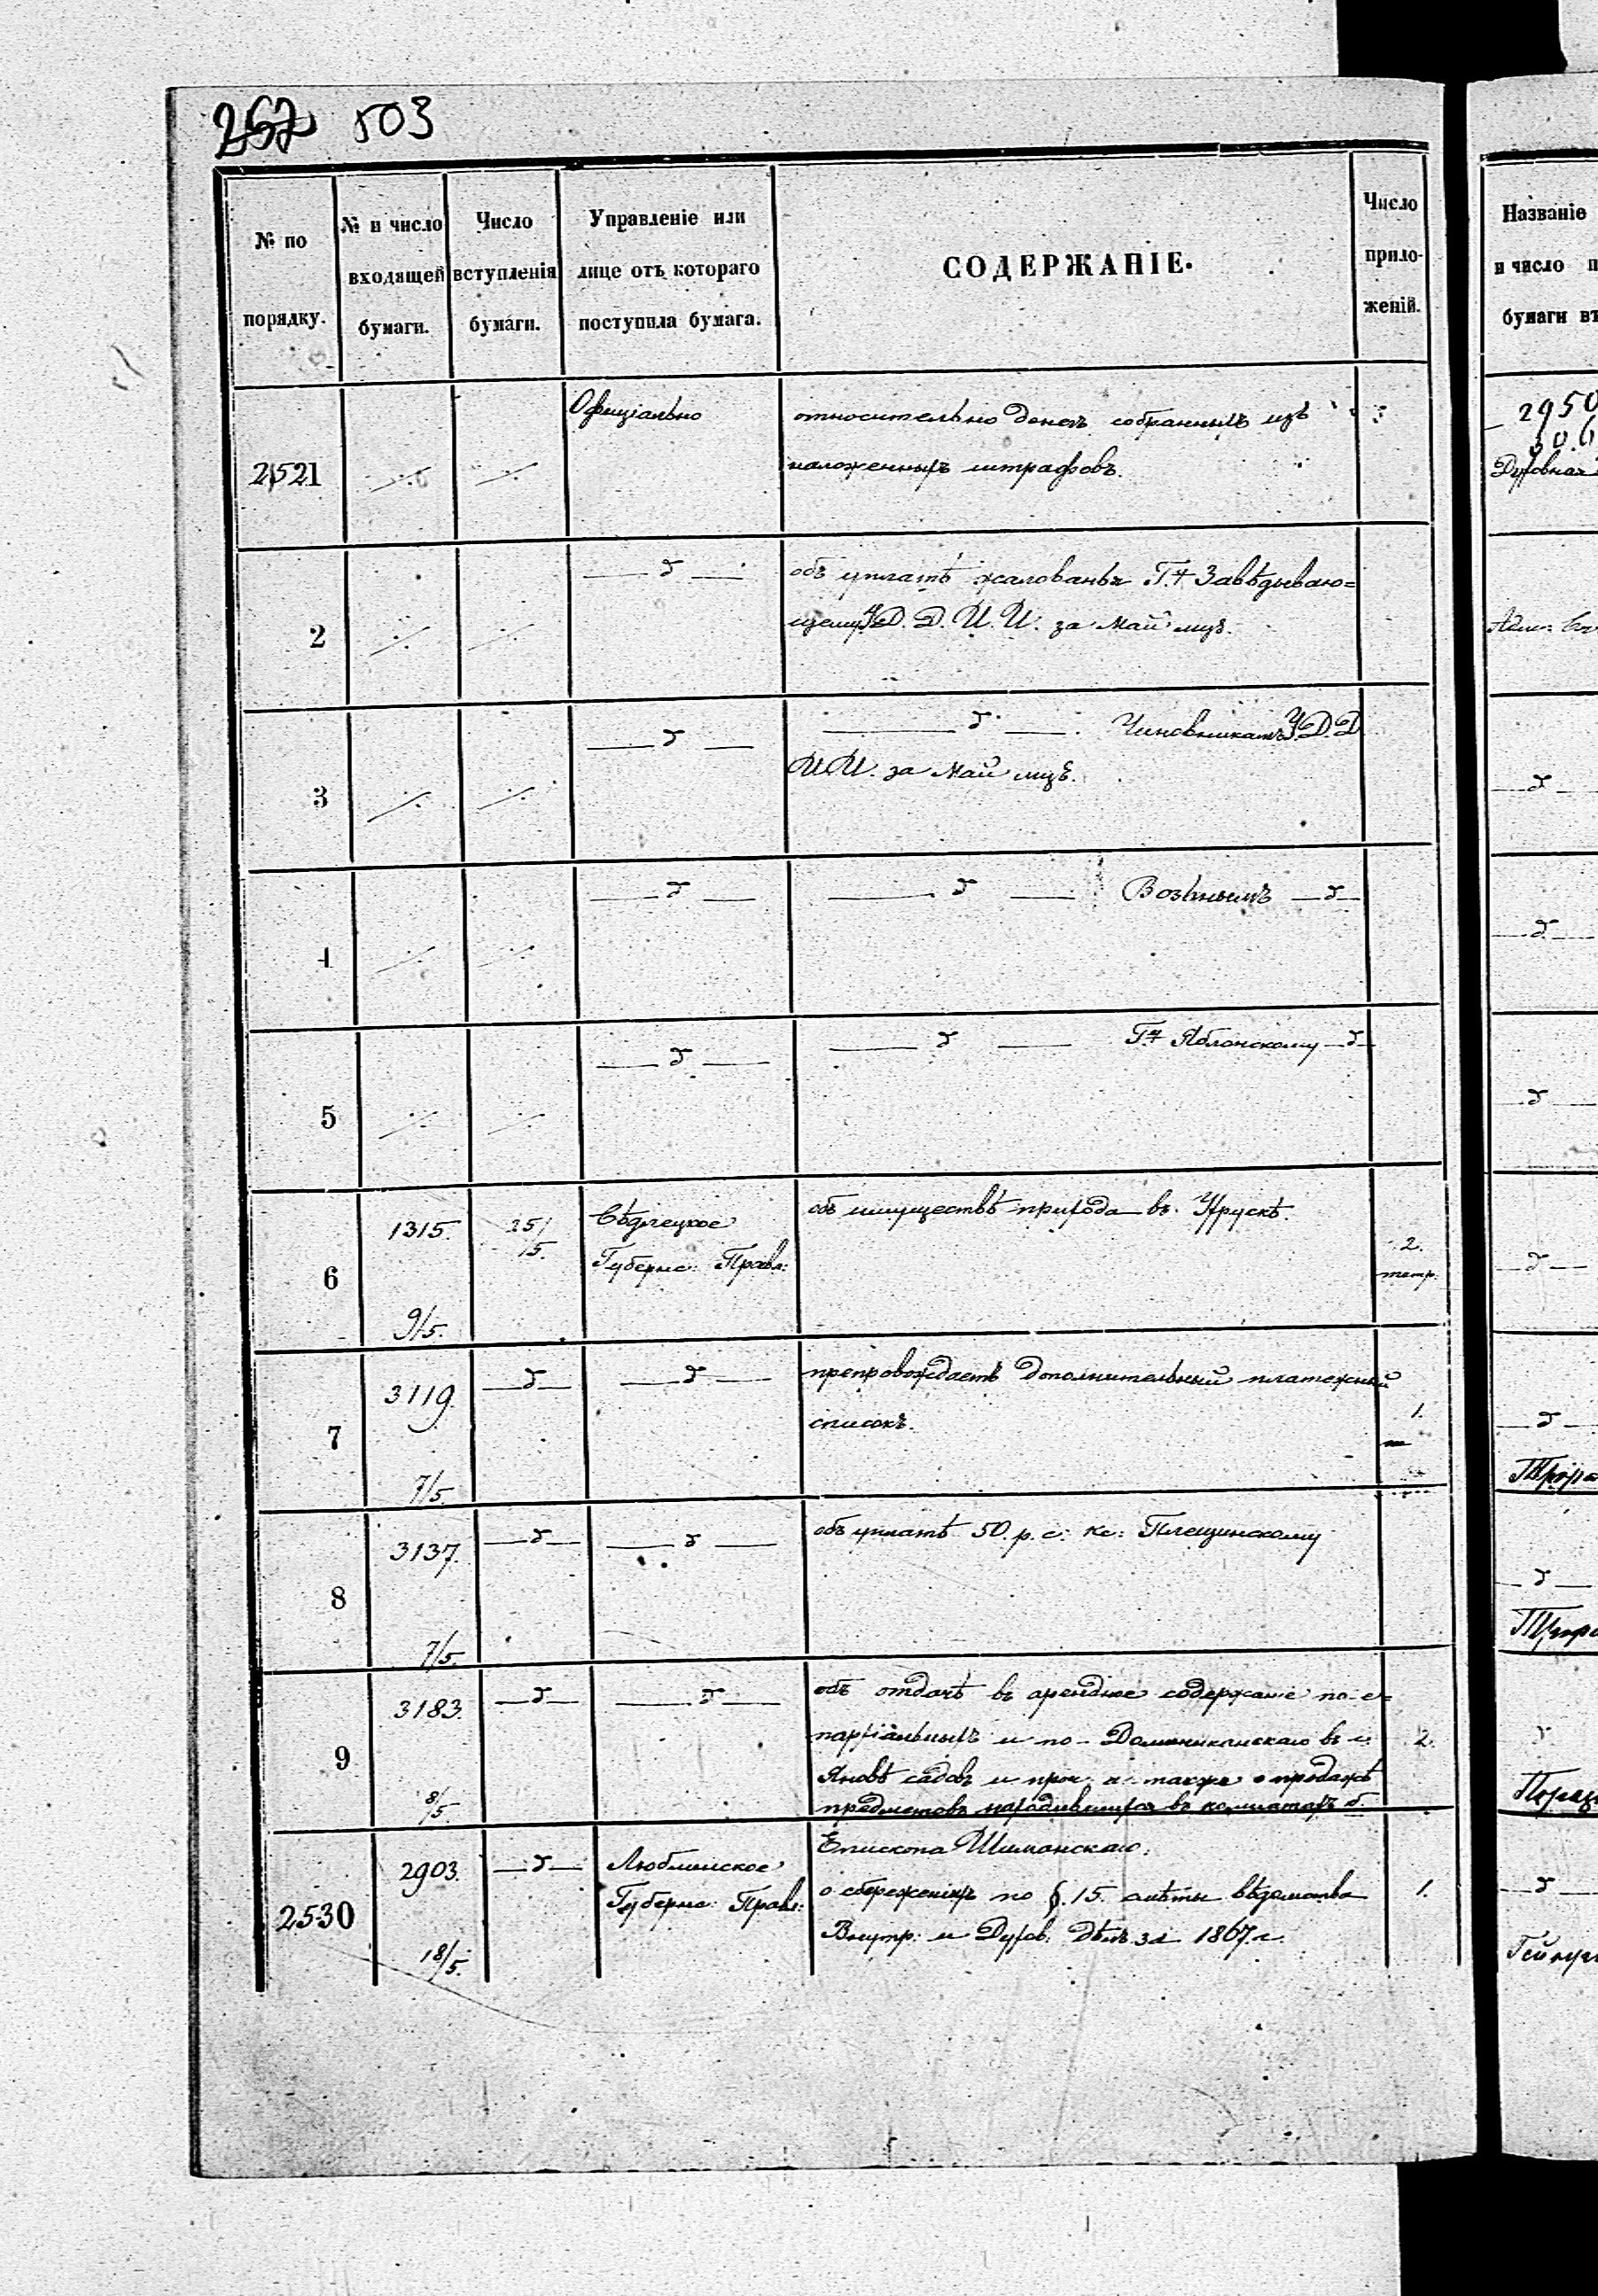 252 503
№ по порядку.
№ и число входящей бумаги.
Число вступленія бумаги.
Управленіе или лице отъ котораго поступила бумага.
СОДЕРЖАНІЕ.
Число приложеній.
2521 ./. ./. Офиціально относительно денегъ собранныхъ изъ
наложенныхъ штрафовъ.
2 ./. ./. — д — объ уплатѣ жалованья Г. Завѣдываю=
щему У.Д.Д.И.И. за Май мцъ.
3 ./. ./. — д — — д — Чиновникамъ У.Д.Д.
И.И. за Май мцъ.
4 ./. ./. — д — — д — Вознымъ — д —
5 ./. ./. — д — — д — Г. Яблонскому — д —
6 1315. 9/5. 25/15. Сѣдлецкое
Губернс: Правл:
объ имуществѣ прихода въ Урускѣ.
2. тетр.
7 3119. 7/5. — д — — д — препровождаетъ дополнительный платежный
списокъ.
1.
8 3137. 7/5. — д — — д — объ уплатѣ 50. р. с: кс: Плещинскому
9 3183. 8/5. — д — — д — объ отдачѣ въ арендное содержаніе по-е=
пархіальныхъ и по-Доминиканскаго въ г.
Яновѣ садовъ и проч. а также о продажѣ
предметовъ находившихся въ комнатахъ б.
Епископа Шиманскаго.
2.
2530 2903. 18/5. — д — Люблинское
Губернс: Правл:
о сбереженіяхъ по §. 15. смѣты вѣдомства
Внутр: и Духов: дѣлъ за 1867. г.
1.
Названіе
и число
бумаги
2950
Духовная
— д —
— д —
— д —
— д —
— д —
— д —
— д —